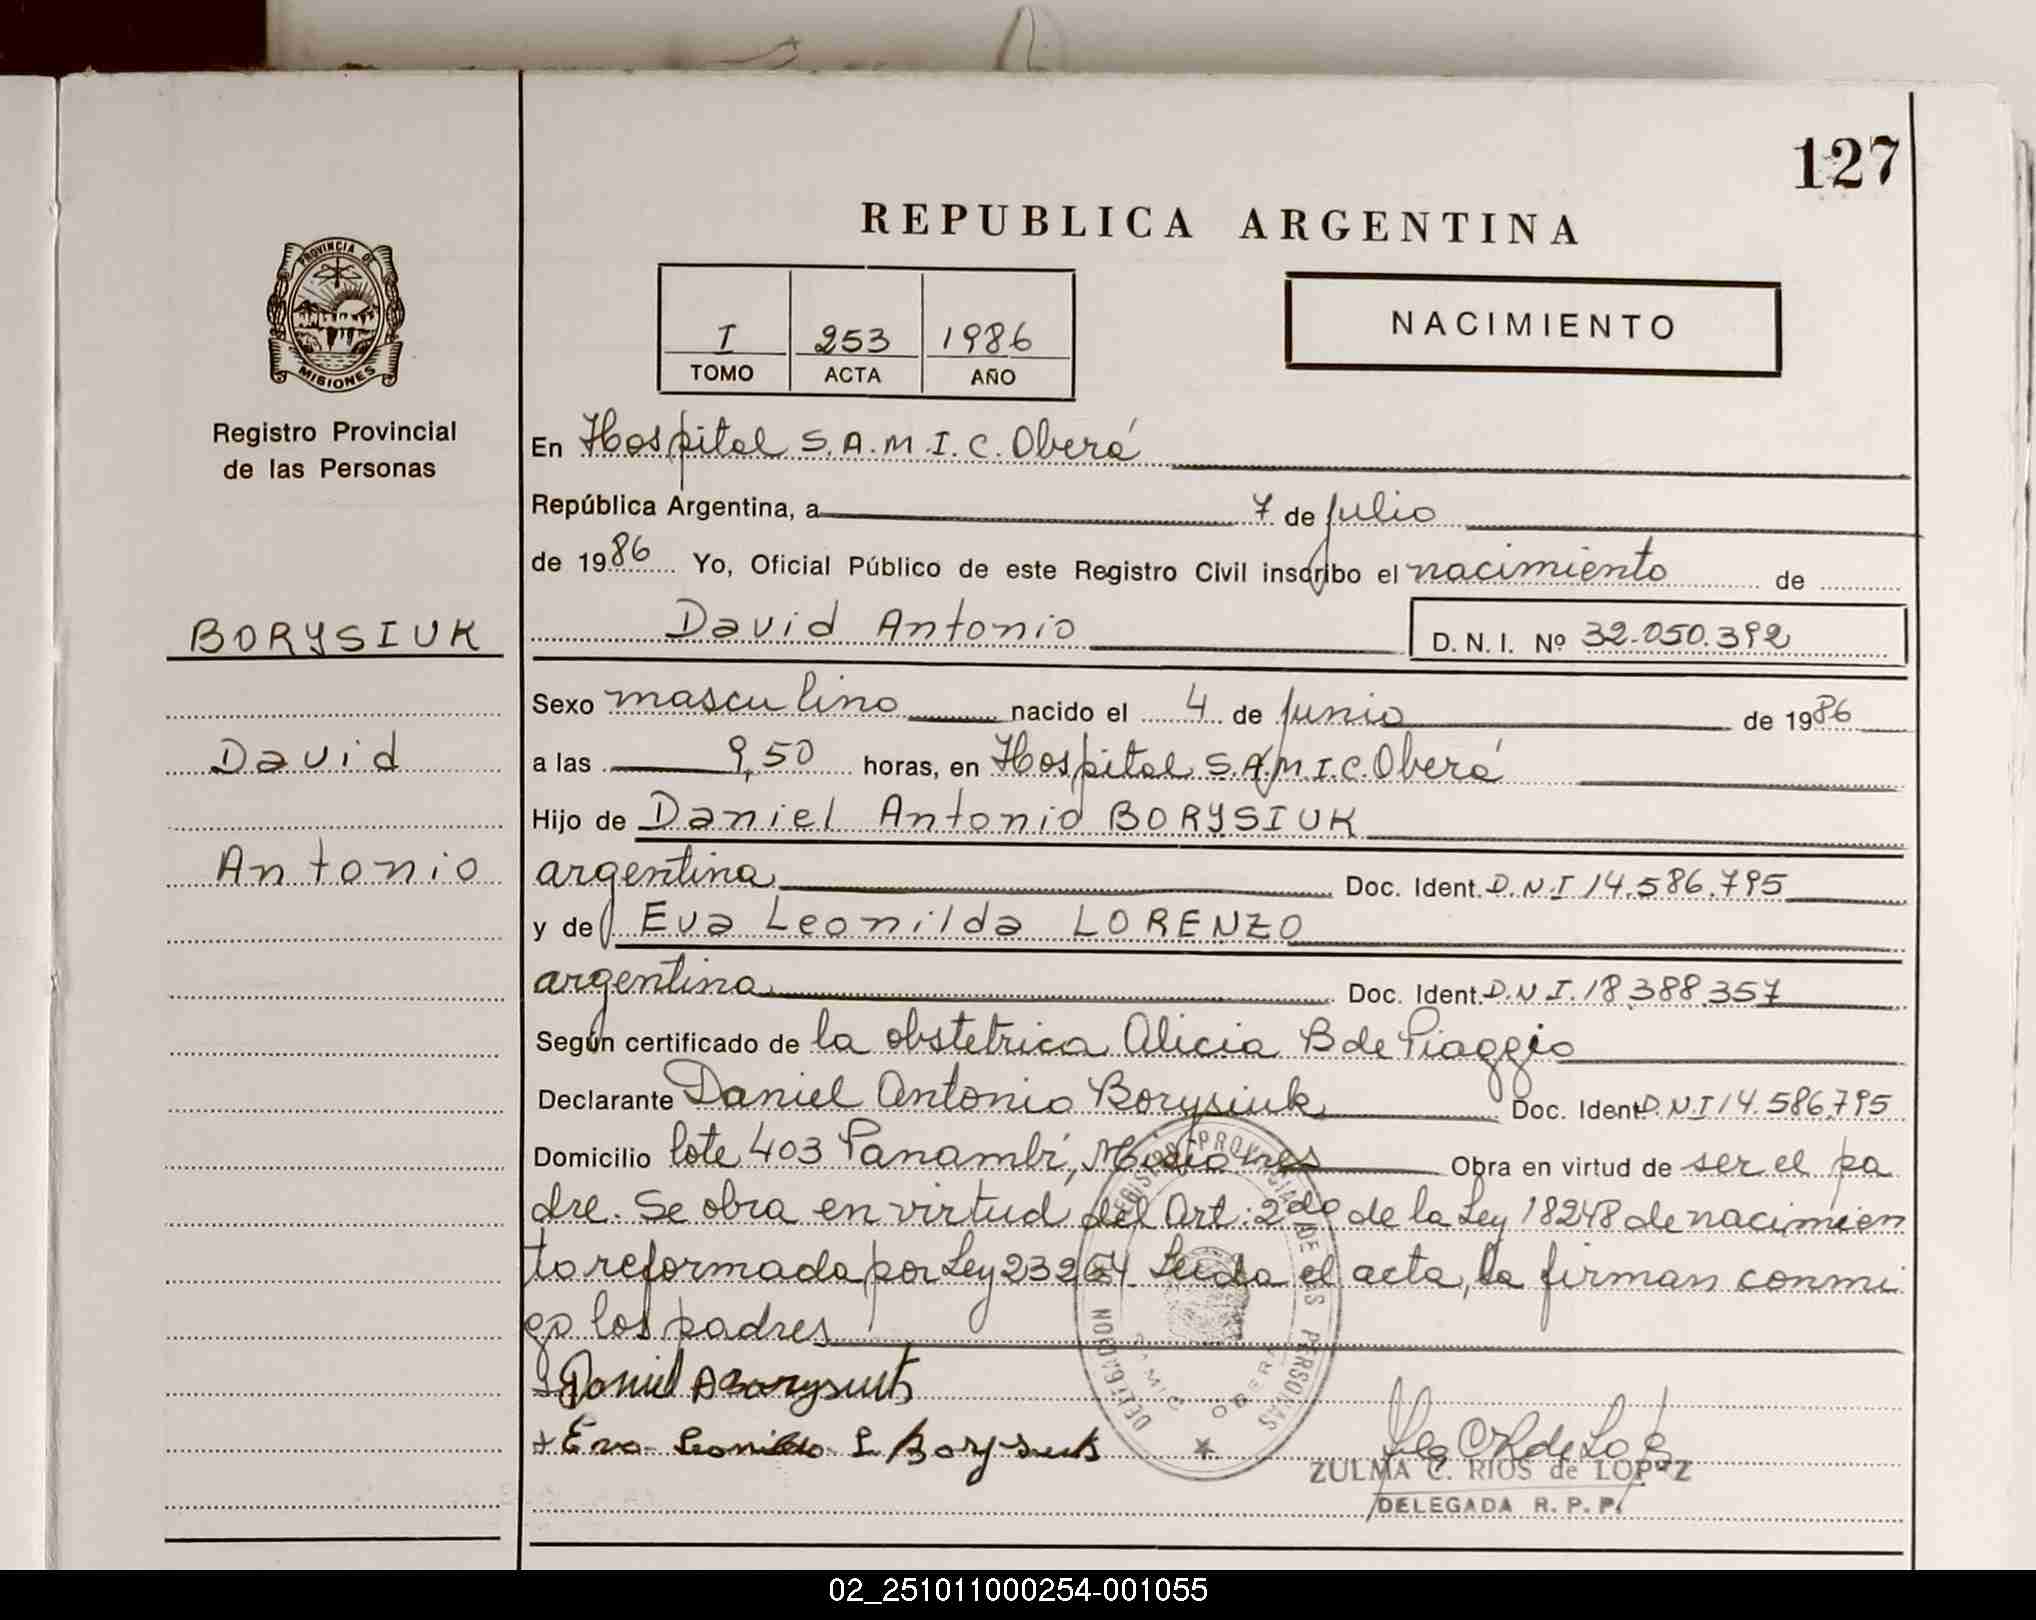 127
REPUBLICA ARGENTINA
PROVINCIA DE
MISIONES
I 253 1986
TOMO ACTA AÑO
NACIMIENTO
Registro Provincial
de las Personas
BORYSIUK
David
Antonio
En Hospital S.A.M.I.C. Oberá
República Argentina, a 7 de julio
de 1986 Yo, Oficial Público de este Registro Civil inscribo el nacimiento de
David Antonio D.N.I. Nº 32.050.392
Sexo masculino nacido el 4 de junio de 1986
a las 9,50 horas, en Hospital S.A.M.I.C. Oberá
Hijo de Daniel Antonio BORYSIUK
argentina Doc. Ident. D.N.I 14.586.795
y de Eva Leonilda LORENZO
argentina Doc. Ident. D.N.I. 18.388.357
Según certificado de la obstetrica Alicia B de Piaggio
Declarante Daniel Antonio Borysiuk Doc. Ident D.N.I 14.586.795
Domicilio lote 403 Panambí, Misiones Obra en virtud de ser el pa
dre. Se obra en virtud del Art: 2do de la Ley 18248 de nacimien
to reformada por Ley 23264 Leida el acta, la firman conmi
go los padres
Daniel A Borysiuk
+ Eva Leonilda L Borysiuk
REGISTRO PROVINCIAL DE LAS PERSONAS
DELEGACION
SAMIC OBERA
ZULMA C. RIOS de LOPEZ
DELEGADA R. P. P.
02_251011000254-001055